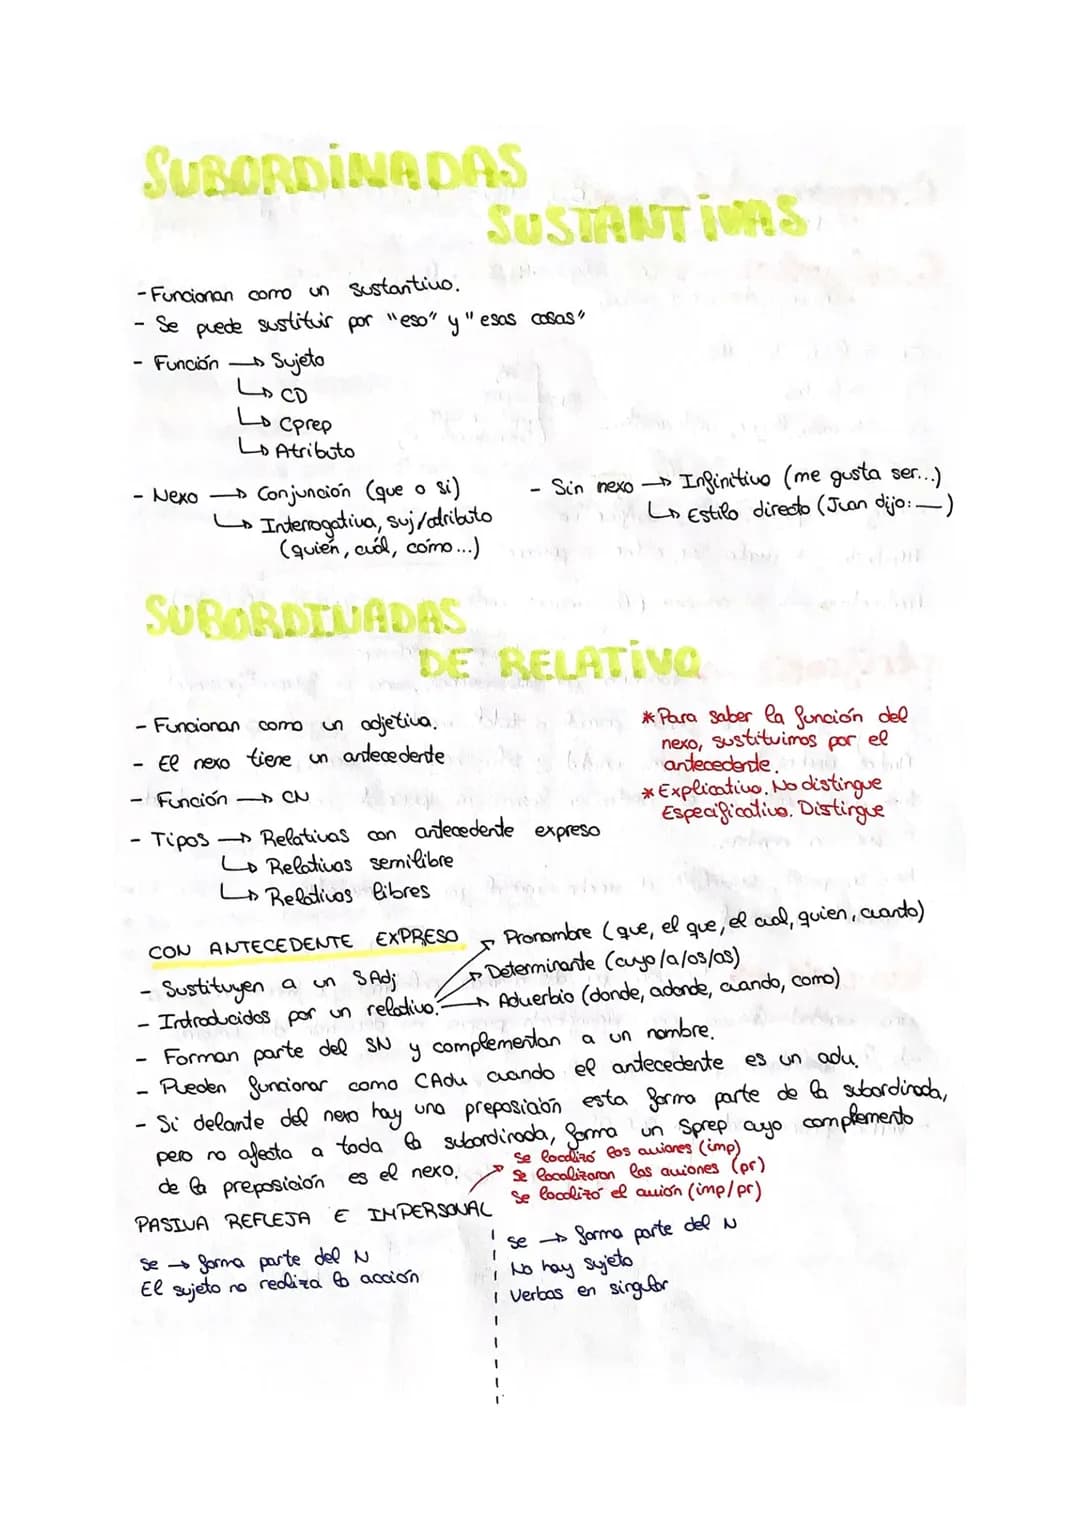 SUBORDINADAS
SUSTANTIVAS
- Funcionan como un sustantivo.
- Se puede sustituir por "eso" y "esas cosas"
- Función → Sujeto
↳ CD
↳ Cprep
↳ Atributo
- Nexo → Conjunción (que o si)
↳ Interrogativa, suj/atributo
(quién, cuál, cómo...)
- Sin nexo → Infinitivo (me gusta ser...)
↳ Estilo directo (Juan dijo: —)
SUBORDINADAS
DE RELATIVO
- Funcionan como un adjetivo.
- El nexo tiene un antecedente
- Función → CN
- Tipos → Relativas con antecedente expreso
↳ Relativas semilibre
↳ Relativas libres
* Para saber la función del
nexo, sustituimos por el
antecedente.
* Explicativo. No distingue
Especificativo. Distingue
CON ANTECEDENTE EXPRESO
- Sustituyen a un SAdj
- Introducidos por un relativo.
→ Pronombre (que, el que, el cual, quien, cuanto)
→ Determinante (cuyo/a/os/as)
→ Adverbio (donde, adonde, cuando, como)
- Forman parte del SN y complementan a un nombre.
- Pueden funcionar como CAdv cuando el antecedente es un adv.
- Si delante del nexo hay una preposición esta forma parte de la subordinada,
pero no afecta a toda la subordinada, forma un Sprep cuyo complemento
de la preposición es el nexo.
Se localizó los aviones (imp)
Se localizaron los aviones (pr)
Se localizó el avión (imp/pr)
PASIVA REFLEJA E IMPERSONAL
Se → forma parte del N
El sujeto no realiza la acción
Se → forma parte del N
No hay sujeto
Verbos en singular